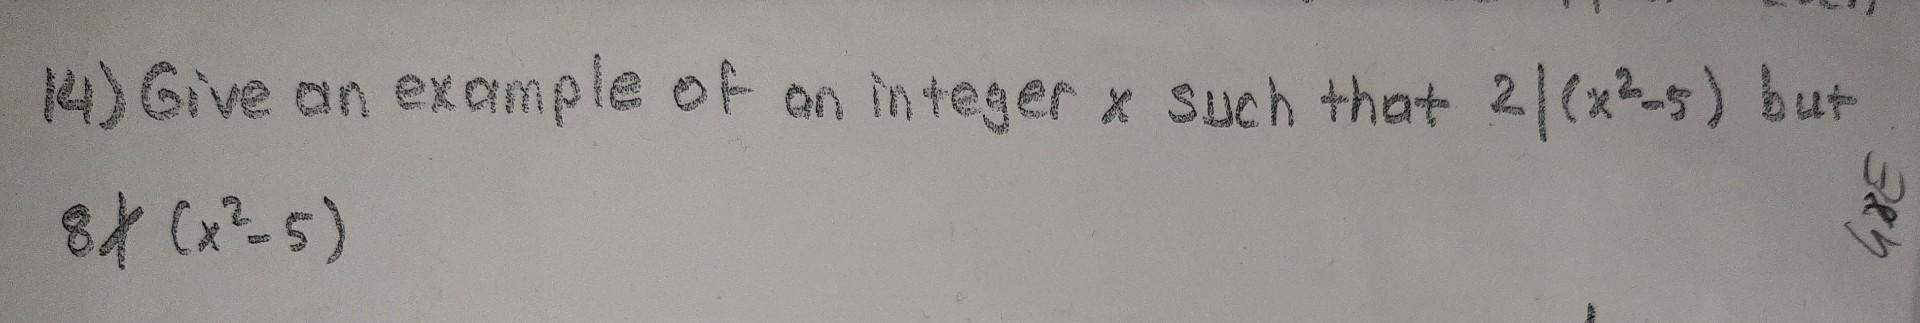 14) Give an example of an integer x such that 2|(x²-5) but
8∤ (x²-5)